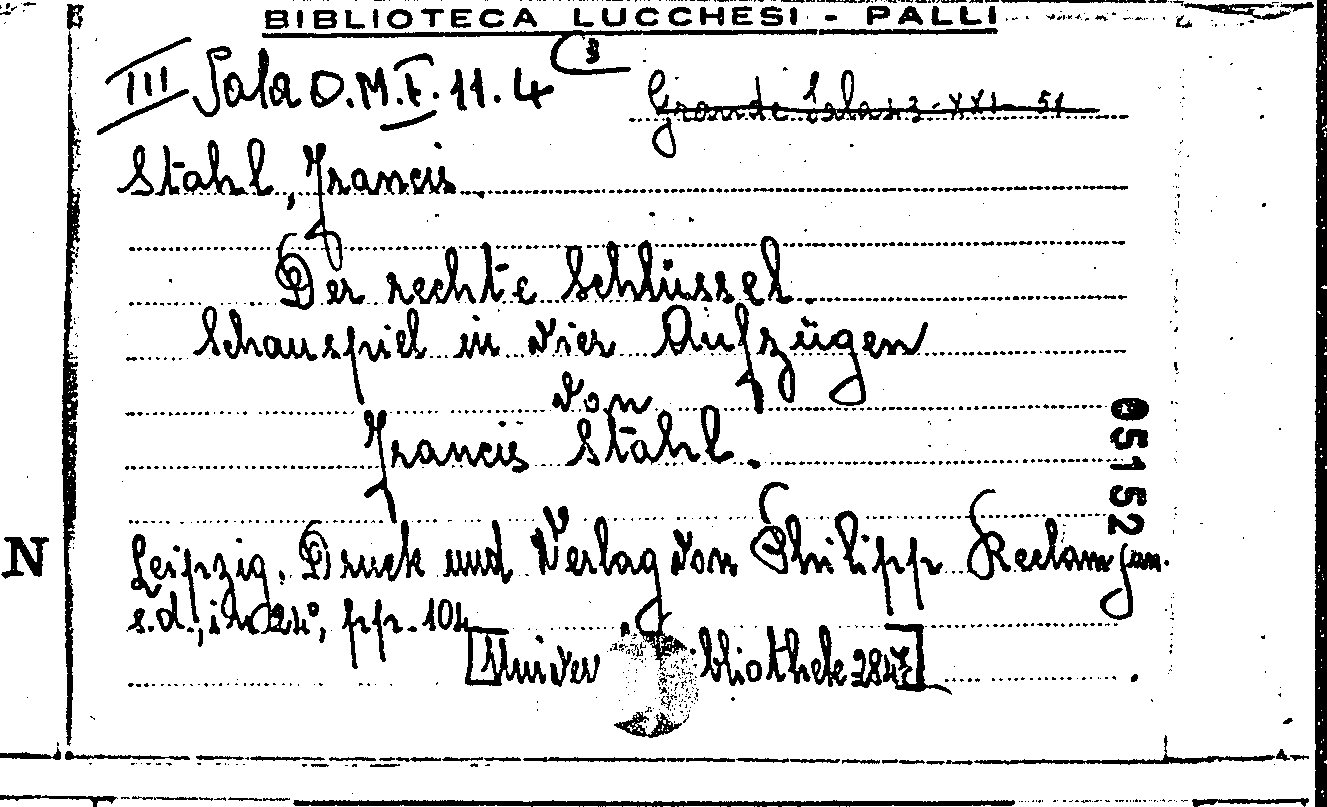 BIBLIOTECA LUCCHESI - PALLI
III Sala O.M.F. 11. 4 (3
Grande Sala 43-XXI-51
Stahl, Francis.
Der rechte Schlüssel.
Schauspiel in vier Aufzügen
von
Francis Stahl.
05152
N
Leipzig. Druck und Verlag von Philipp Reclam jun.
s.d., in 24°, pp. 104
[Univer bliothek 2847]